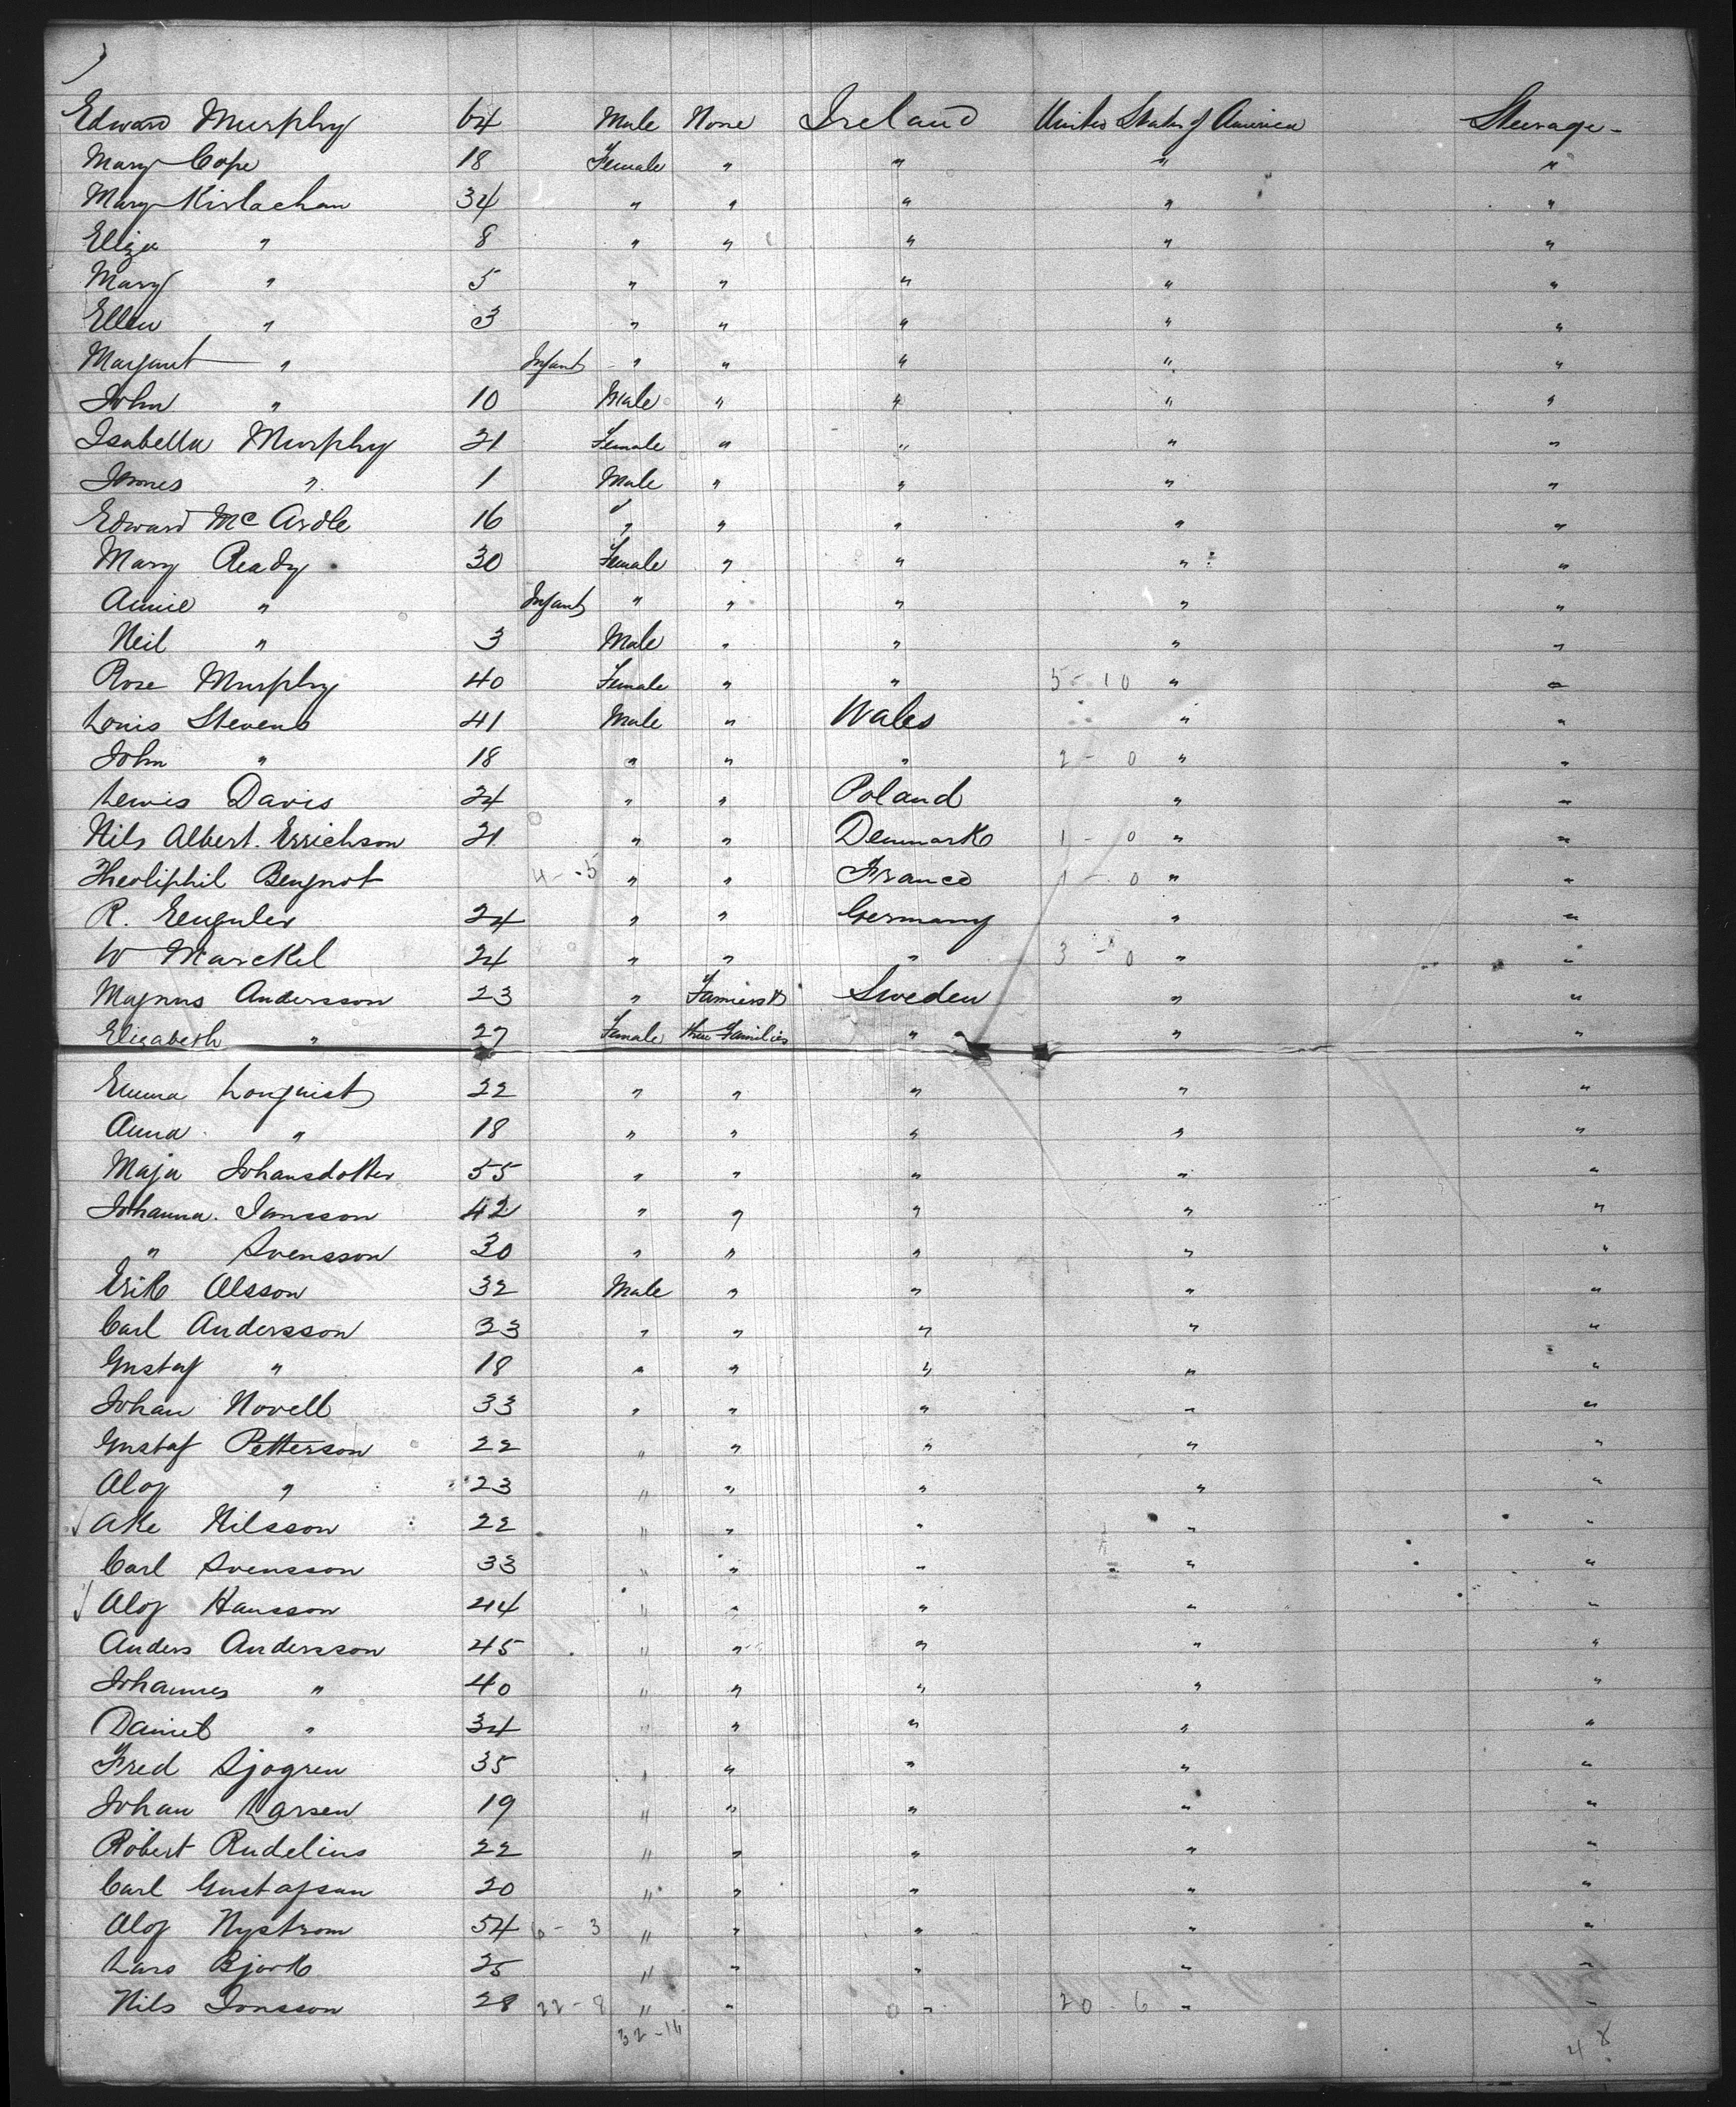 Edward Murphy 64 Male None Ireland United States of America Steerage -
Mary Cope 18 Female " " " "
Mary Kirlachan 34 " " " " "
Eliza " 8 " " " " "
Mary " 5 " " " " "
Ellen " 3 " " " " "
Margaret " Infant " " " " "
John " 10 Male " " " "
Isabella Murphy 21 Female " " " "
James " 1 Male " " " "
Edward Mc Ardle 16 " " " " "
Mary Ready 30 Female " " " "
Annie " Infant " " " " "
Neil " 3 Male " " " "
Rose Murphy 40 Female " " 5 - 10 " "
Louis Stevens 41 Male " Wales " "
John " 18 " " " 2 - 0 " "
Lewis Davis 24 " " Poland " "
Nils Albert. Errichson 21 " " Denmark 1 - 0 " "
Theoliphil Beugnot 4 - 5 " " France 1 - 0 " "
R. 24 " " Germany " "
W Marckel 24 " " " 3 - 0 " "
Magnus Andersson 23 " Farmers & Sweden " "
Elizabeth " 27 Female their Families " " "
Emma Lonquist 22 " " " " "
Anna " 18 " " " " "
Maja Johansdotter 55 " " " " "
Johanna. Jansson 42 " " " " "
" Svensson 30 " " " " "
Erik Olsson 32 Male " " " "
Carl Andersson 23 " " " " "
Gustaf " 18 " " " " "
Johan Novell 33 " " " " "
Gustaf Petterson 22 " " " " "
Alof " 23 " " " " "
Ake Nilsson 22 " " " " "
Carl Svensson 33 " " " " "
Alof Hansson 44 " " " " "
Anders Andersson 45 " " " " "
Johannes " 40 " " " " "
Daniel " 34 " " " " "
Fred Sjogren 35 " " " " "
Johan Larsen 19 " " " " "
Robert Rudelius 22 " " " " "
Carl Gustafsan 20 " " " " "
Alof Nystrom 54 6 - 3 " " " " "
Lars Bjork 25 " " " " "
Nils Jonsson 28 22 - 8 " " 0 " 20 - 6 " "
32 - 16
48